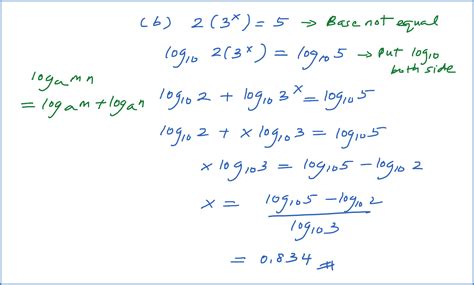 (b) 2(3ˣ) = 5 → Base not equal
log₁₀ 2(3ˣ) = log₁₀ 5 → Put log₁₀ both side
logₐ mn
= logₐ m + logₐ n
log₁₀ 2 + log₁₀ 3ˣ = log₁₀ 5
log₁₀ 2 + x log₁₀ 3 = log₁₀ 5
x log₁₀ 3 = log₁₀ 5 - log₁₀ 2
x = log₁₀ 5 - log₁₀ 2
log₁₀ 3
= 0.834 #